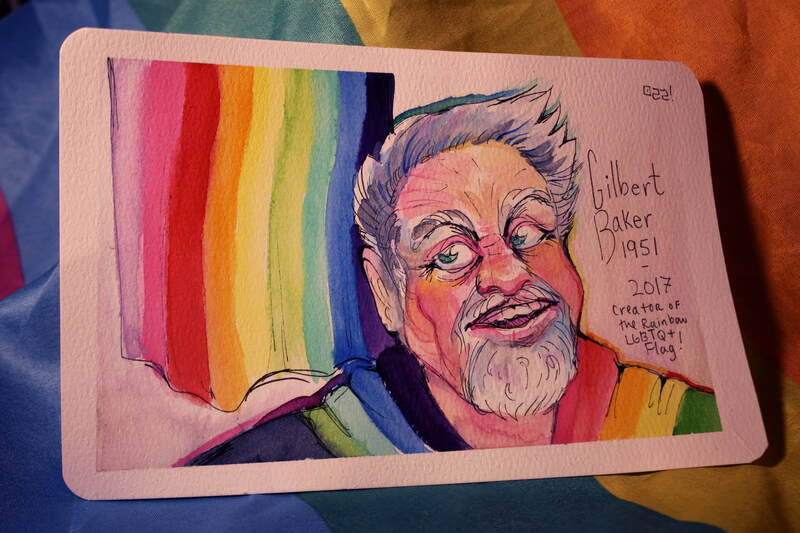 Gilbert
Baker
1951
-
2017
Creator of
the Rainbow
LGBTQ+
Flag!